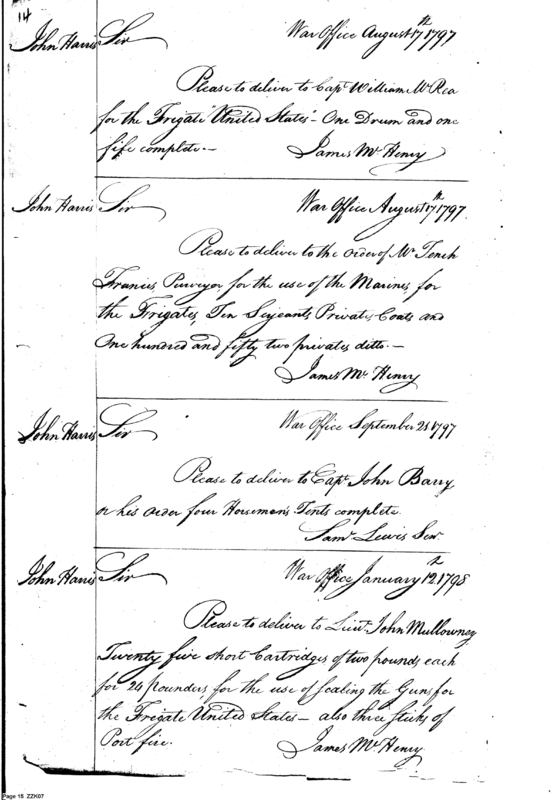 14
War Office August 17th 1797
John Harris Sir
Please to deliver to Capt William McRea
for the Frigate "United States" - One Drum and one
fife complete.-
James McHenry
War Office August 17th 1797.
John Harris Sir
Please to deliver to the order of Mr Tench
Francis Purveyor, for the use of the Marines, for
the Frigates, Ten Serjeants Privates Coats and
One hundred and fifty two privates ditto.-
James McHenry
War Office September 21 1797
John Harris Sir
Please to deliver to Capt John Barry
or his order four Horseman's Tents complete.
Saml Lewis Senr
War Office January 12 1798
John Harris Sir
Please to deliver to Lieut John Mullowney
Twenty five short Cartridges of two pounds each
for 24 pounders, for the use of scaling the Guns for
the Frigate United States - also three sticks of
Port fire.
James McHenry
Page 15 ZZK07